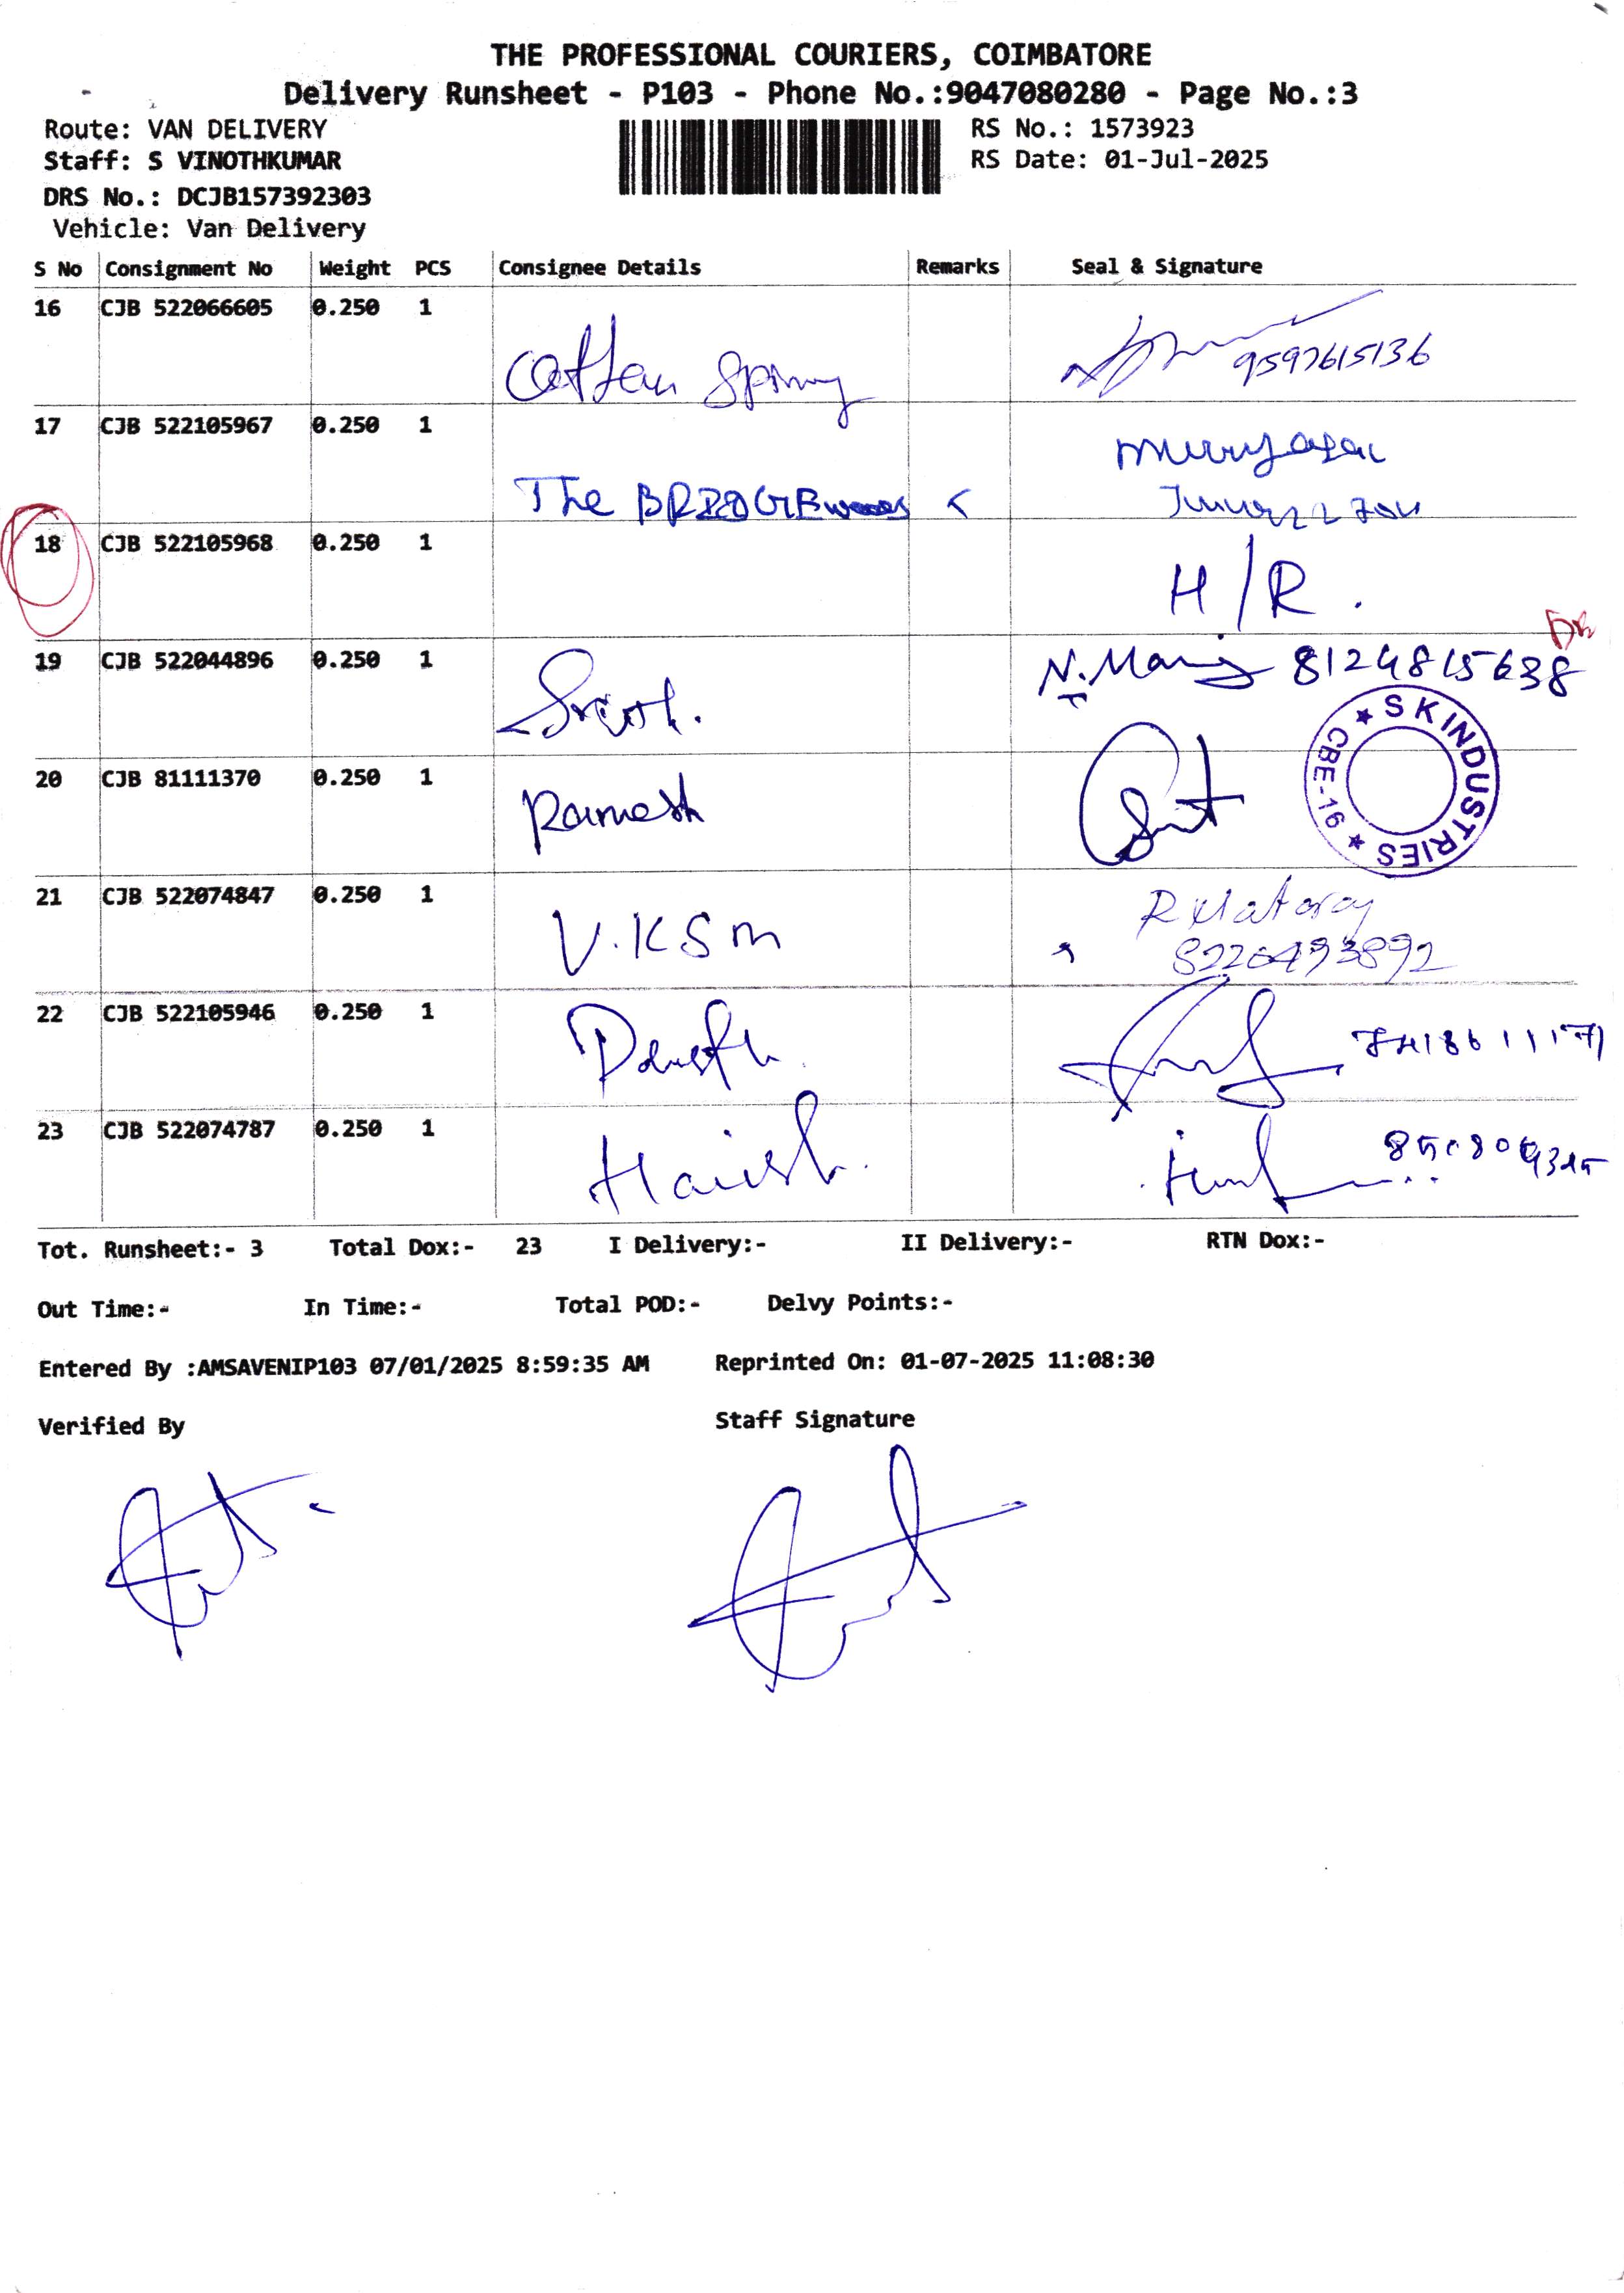 THE PROFESSIONAL COURIERS, COIMBATORE
Delivery Runsheet - P103 - Phone No.:9047080280 - Page No.:3
Route: VAN DELIVERY
RS No.: 1573923
Staff: S VINOTHKUMAR
RS Date: 01-Jul-2025
DRS No.: DCJB157392303
Vehicle: Van Delivery
S No Consignment No Weight PCS Consignee Details Remarks Seal & Signature
16 CJB 522066605 0.250 1
9597615136
17 CJB 522105967 0.250 1
The
18 CJB 522105968 0.250 1
H/R.
19 CJB 522044896 0.250 1 N. Mani 8124815638
20 CJB 81111370 0.250 1
Ramesh
SKINDUSTRIES ★ CBE-16 ★
21 CJB 522074847 0.250 1
V.KSM
8220493892
22 CJB 522105946 0.250 1
23 CJB 522074787 0.250 1
Harish
Tot. Runsheet:- 3 Total Dox:- 23 I Delivery:- II Delivery:- RTN Dox:-
Out Time:- In Time:- Total POD:- Delvy Points:-
Entered By :AMSAVENIP103 07/01/2025 8:59:35 AM Reprinted On: 01-07-2025 11:08:30
Verified By Staff Signature